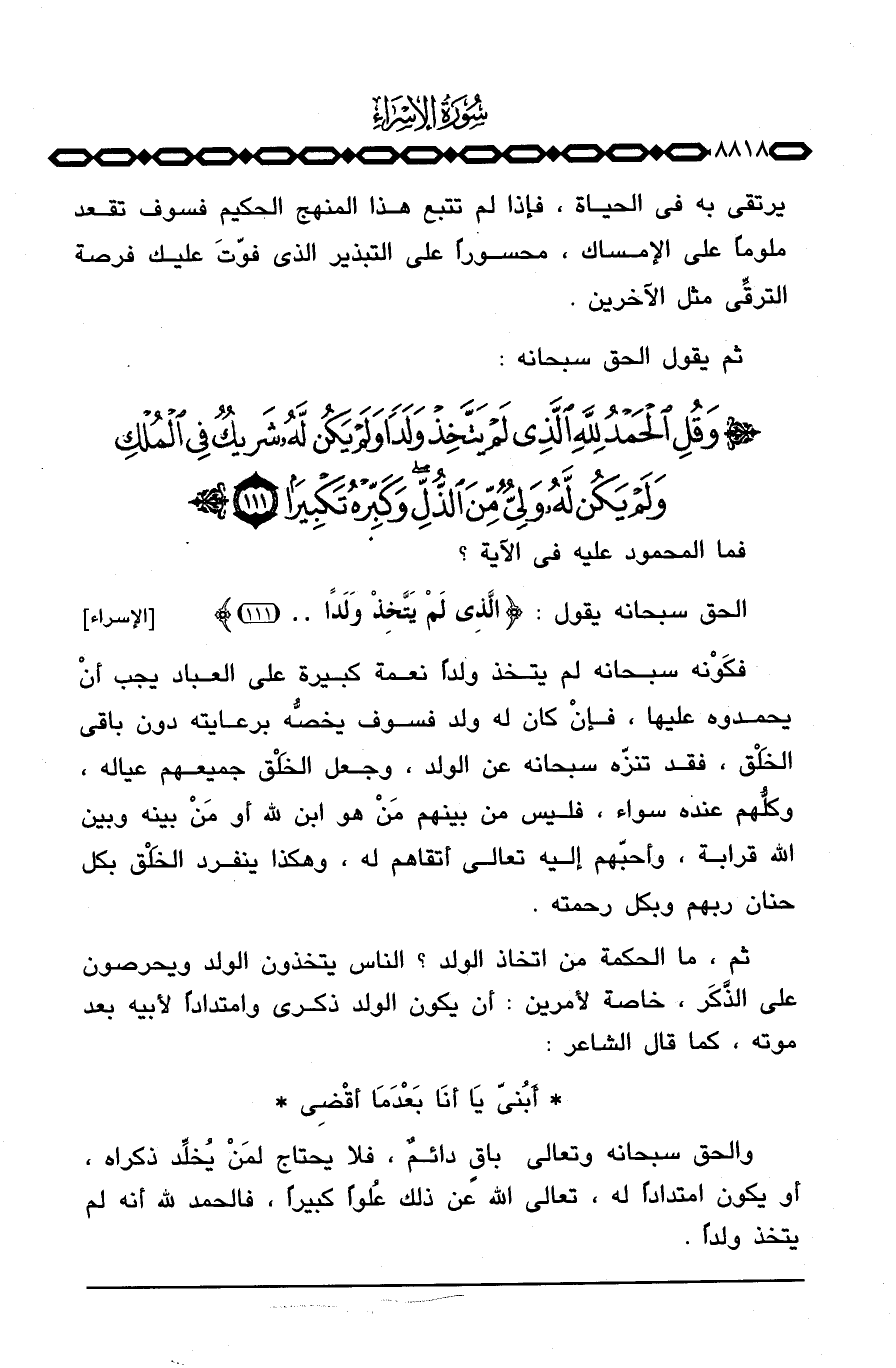 سُورَةُ الإِسْرَاءِ
٨٨١٨
يرتقى به فى الحياة ، فإذا لم تتبع هذا المنهج الحكيم فسوف تقعد
ملوماً على الإمساك ، محسوراً على التبذير الذى فوّتَ عليك فرصة
الترقِّى مثل الآخرين .
ثم يقول الحق سبحانه :
وَقُلِ ٱلْحَمْدُ لِلَّهِ ٱلَّذِى لَمْ يَتَّخِذْ وَلَدًا وَلَمْ يَكُن لَّهُۥ شَرِيكٌ فِى ٱلْمُلْكِ
وَلَمْ يَكُن لَّهُۥ وَلِىٌّ مِّنَ ٱلذُّلِّ ۖ وَكَبِّرْهُ تَكْبِيرًۢا ١١١
فما المحمود عليه فى الآية ؟
الحق سبحانه يقول : ﴿الَّذِى لَمْ يَتَّخِذْ وَلَدًا .. (١١١)﴾ [الإسراء]
فكَوْنه سبحانه لم يتخذ ولداً نعمة كبيرة على العباد يجب أنْ
يحمدوه عليها ، فإنْ كان له ولد فسوف يخصُّه برعايته دون باقى
الخَلْق ، فقد تنزّه سبحانه عن الولد ، وجعل الخَلْق جميعهم عياله ،
وكلُّهم عنده سواء ، فليس من بينهم مَنْ هو ابن لله أو مَنْ بينه وبين
الله قرابة ، وأحبّهم إليه تعالى أتقاهم له ، وهكذا ينفرد الخَلْق بكل
حنان ربهم وبكل رحمته .
ثم ، ما الحكمة من اتخاذ الولد ؟ الناس يتخذون الولد ويحرصون
على الذَّكَر ، خاصة لأمرين : أن يكون الولد ذكرى وامتداداً لأبيه بعد
موته ، كما قال الشاعر :
* أَبُنىّ يَا أنَا بَعْدَمَا أقْضِى *
والحق سبحانه وتعالى باقٍ دائمٌ ، فلا يحتاج لمَنْ يُخلِّد ذكراه ،
أو يكون امتداداً له ، تعالى الله عن ذلك عُلواً كبيراً ، فالحمد لله أنه لم
يتخذ ولداً .